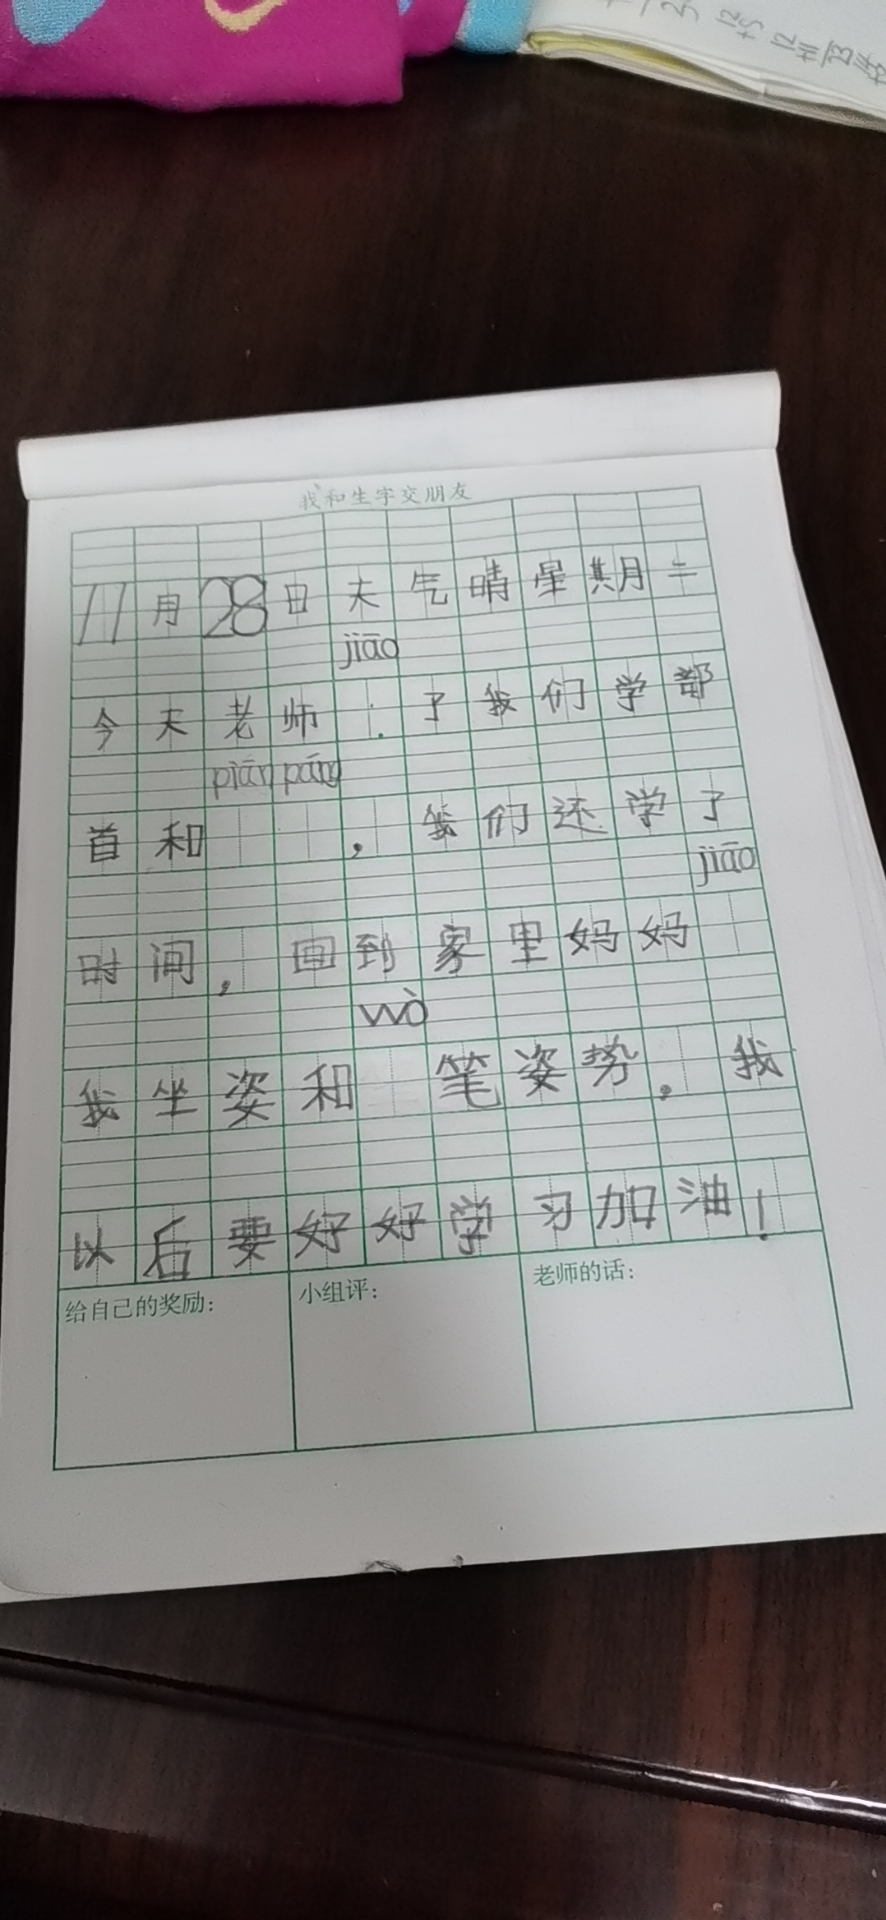 我和生字交朋友
11月28日天气晴星期二
jiāo
今天老师.了我们学部
piān pāng
首和，我们还学了
jiāo
时间，回到家里妈妈
wò
我坐姿和笔姿势，我
以后要好好学习加油！
给自己的奖励：
小组评：
老师的话：